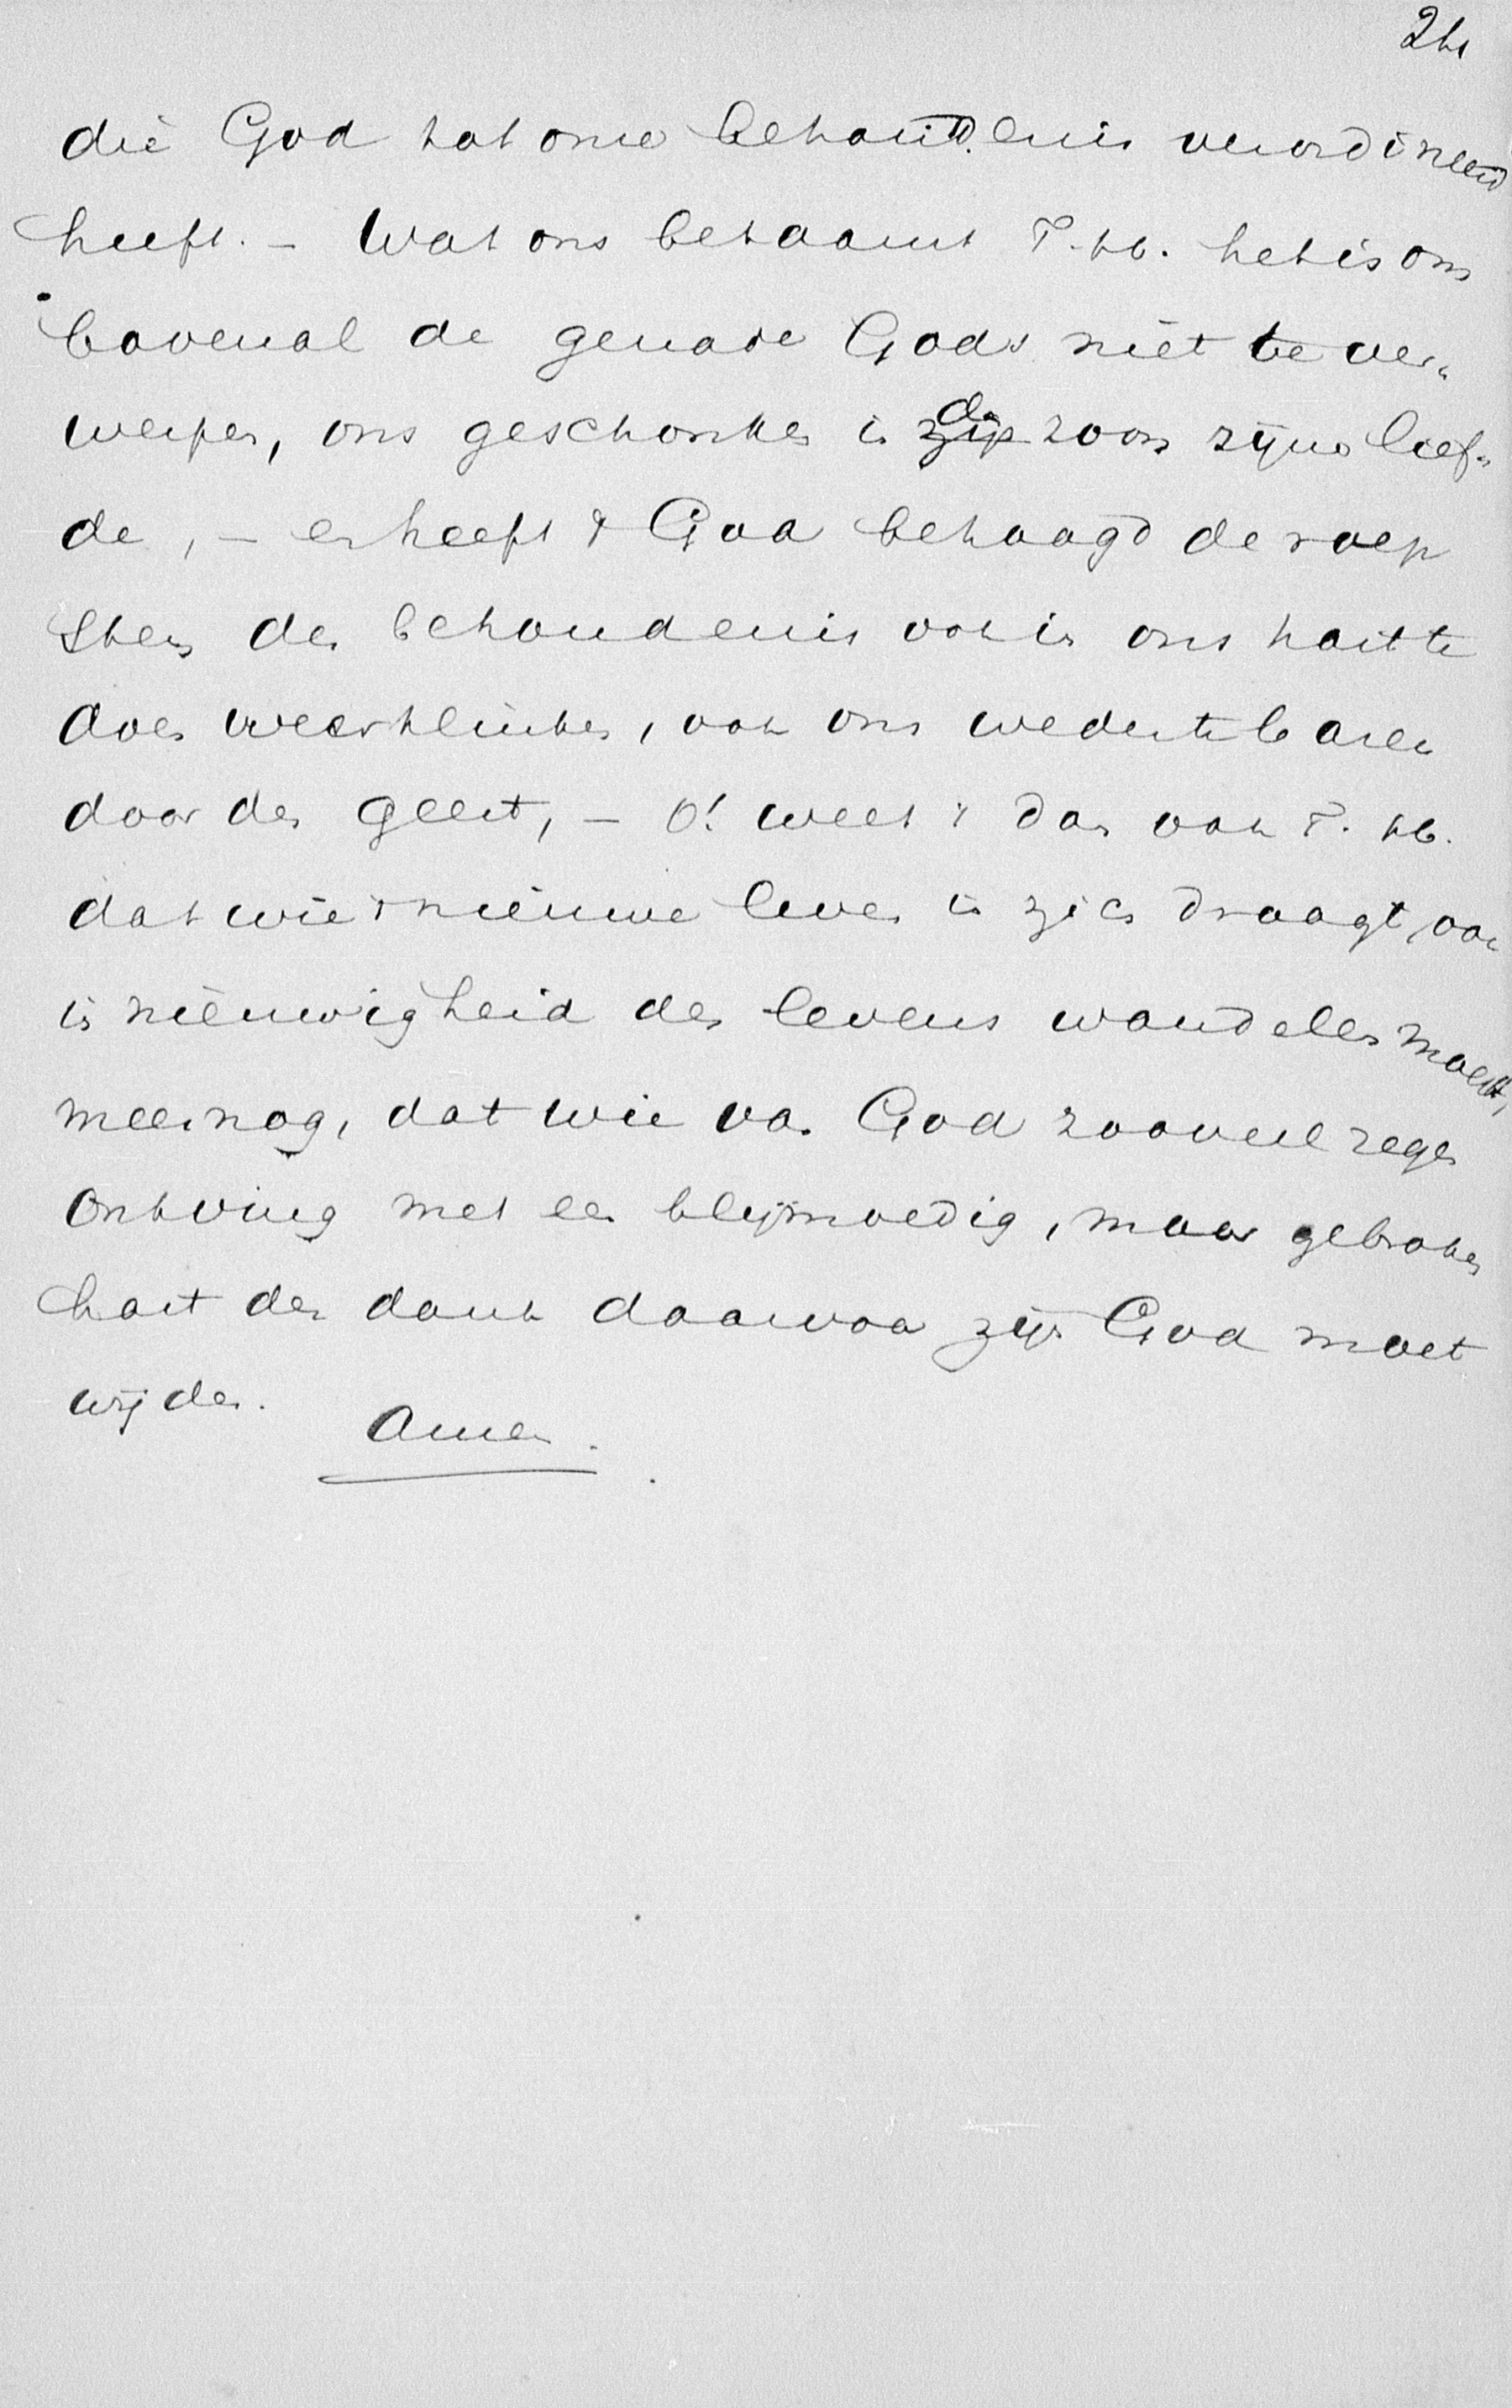 24
die God tot onze behoudenis verordineerd
heeft. – Wat ons betaamt T. h. het is om
bovenal de genade Gods niet te ver-
werpen, ons geschonken in den zoon zijner lief-
de, – en heeft 't God behaagd de roep
stem der behoudenis ook in ons hart te
doen weerklinken, ook ons weder te baren
door den geest, – O! weet 't dan ook T. h.
dat wie 't nieuwe leven in zich draagt, ook
in nieuwigheid des levens wandelen moet,
meer nog, dat wie van God zooveel zegen
ontving met een blijmoedig, maar gebroken
hart den dank daarvoor zijn God moet
wijden.
Amen.